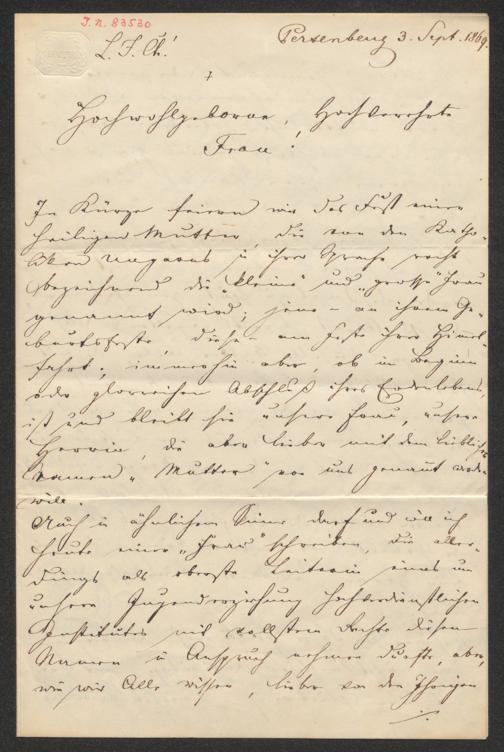 J.N. 83530
Persenbeug 3. Sept. 1869.
L. J. Ch.!
Hochwohlgeborne, Hochverehrte
Frau!
In Kürze feiern wir das Fest einer
heiligen Mutter, die von den Katho-
liken Ungarns in ihrer Sprache recht
bezeichnend die „kleine" und „große" Frau
genannt wird; jene – an ihrem Ge-
burtsfeste, diese – am Feste ihrer Himmel-
fahrt; immerhin aber, ob im Beginn
oder glorreichen Abschluß ihres Erdenlebens,
ist und bleibt sie unsere Frau, unsere
Herrin, die aber lieber mit dem lieblichen
Namen „Mutter" von uns genannt werden
will.
Auch in ähnlichem Sinne darf und will ich
heute einer „Frau" schreiben, die aller-
dings als oberste Leiterin eines um
unsere Jugenderziehung hochverdienstlichen
Institutes mit vollstem Rechte diesen
Namen in Anspruch nehmen dürfte, aber,
wie wir Alle wissen, lieber von den Ihrigen
./.